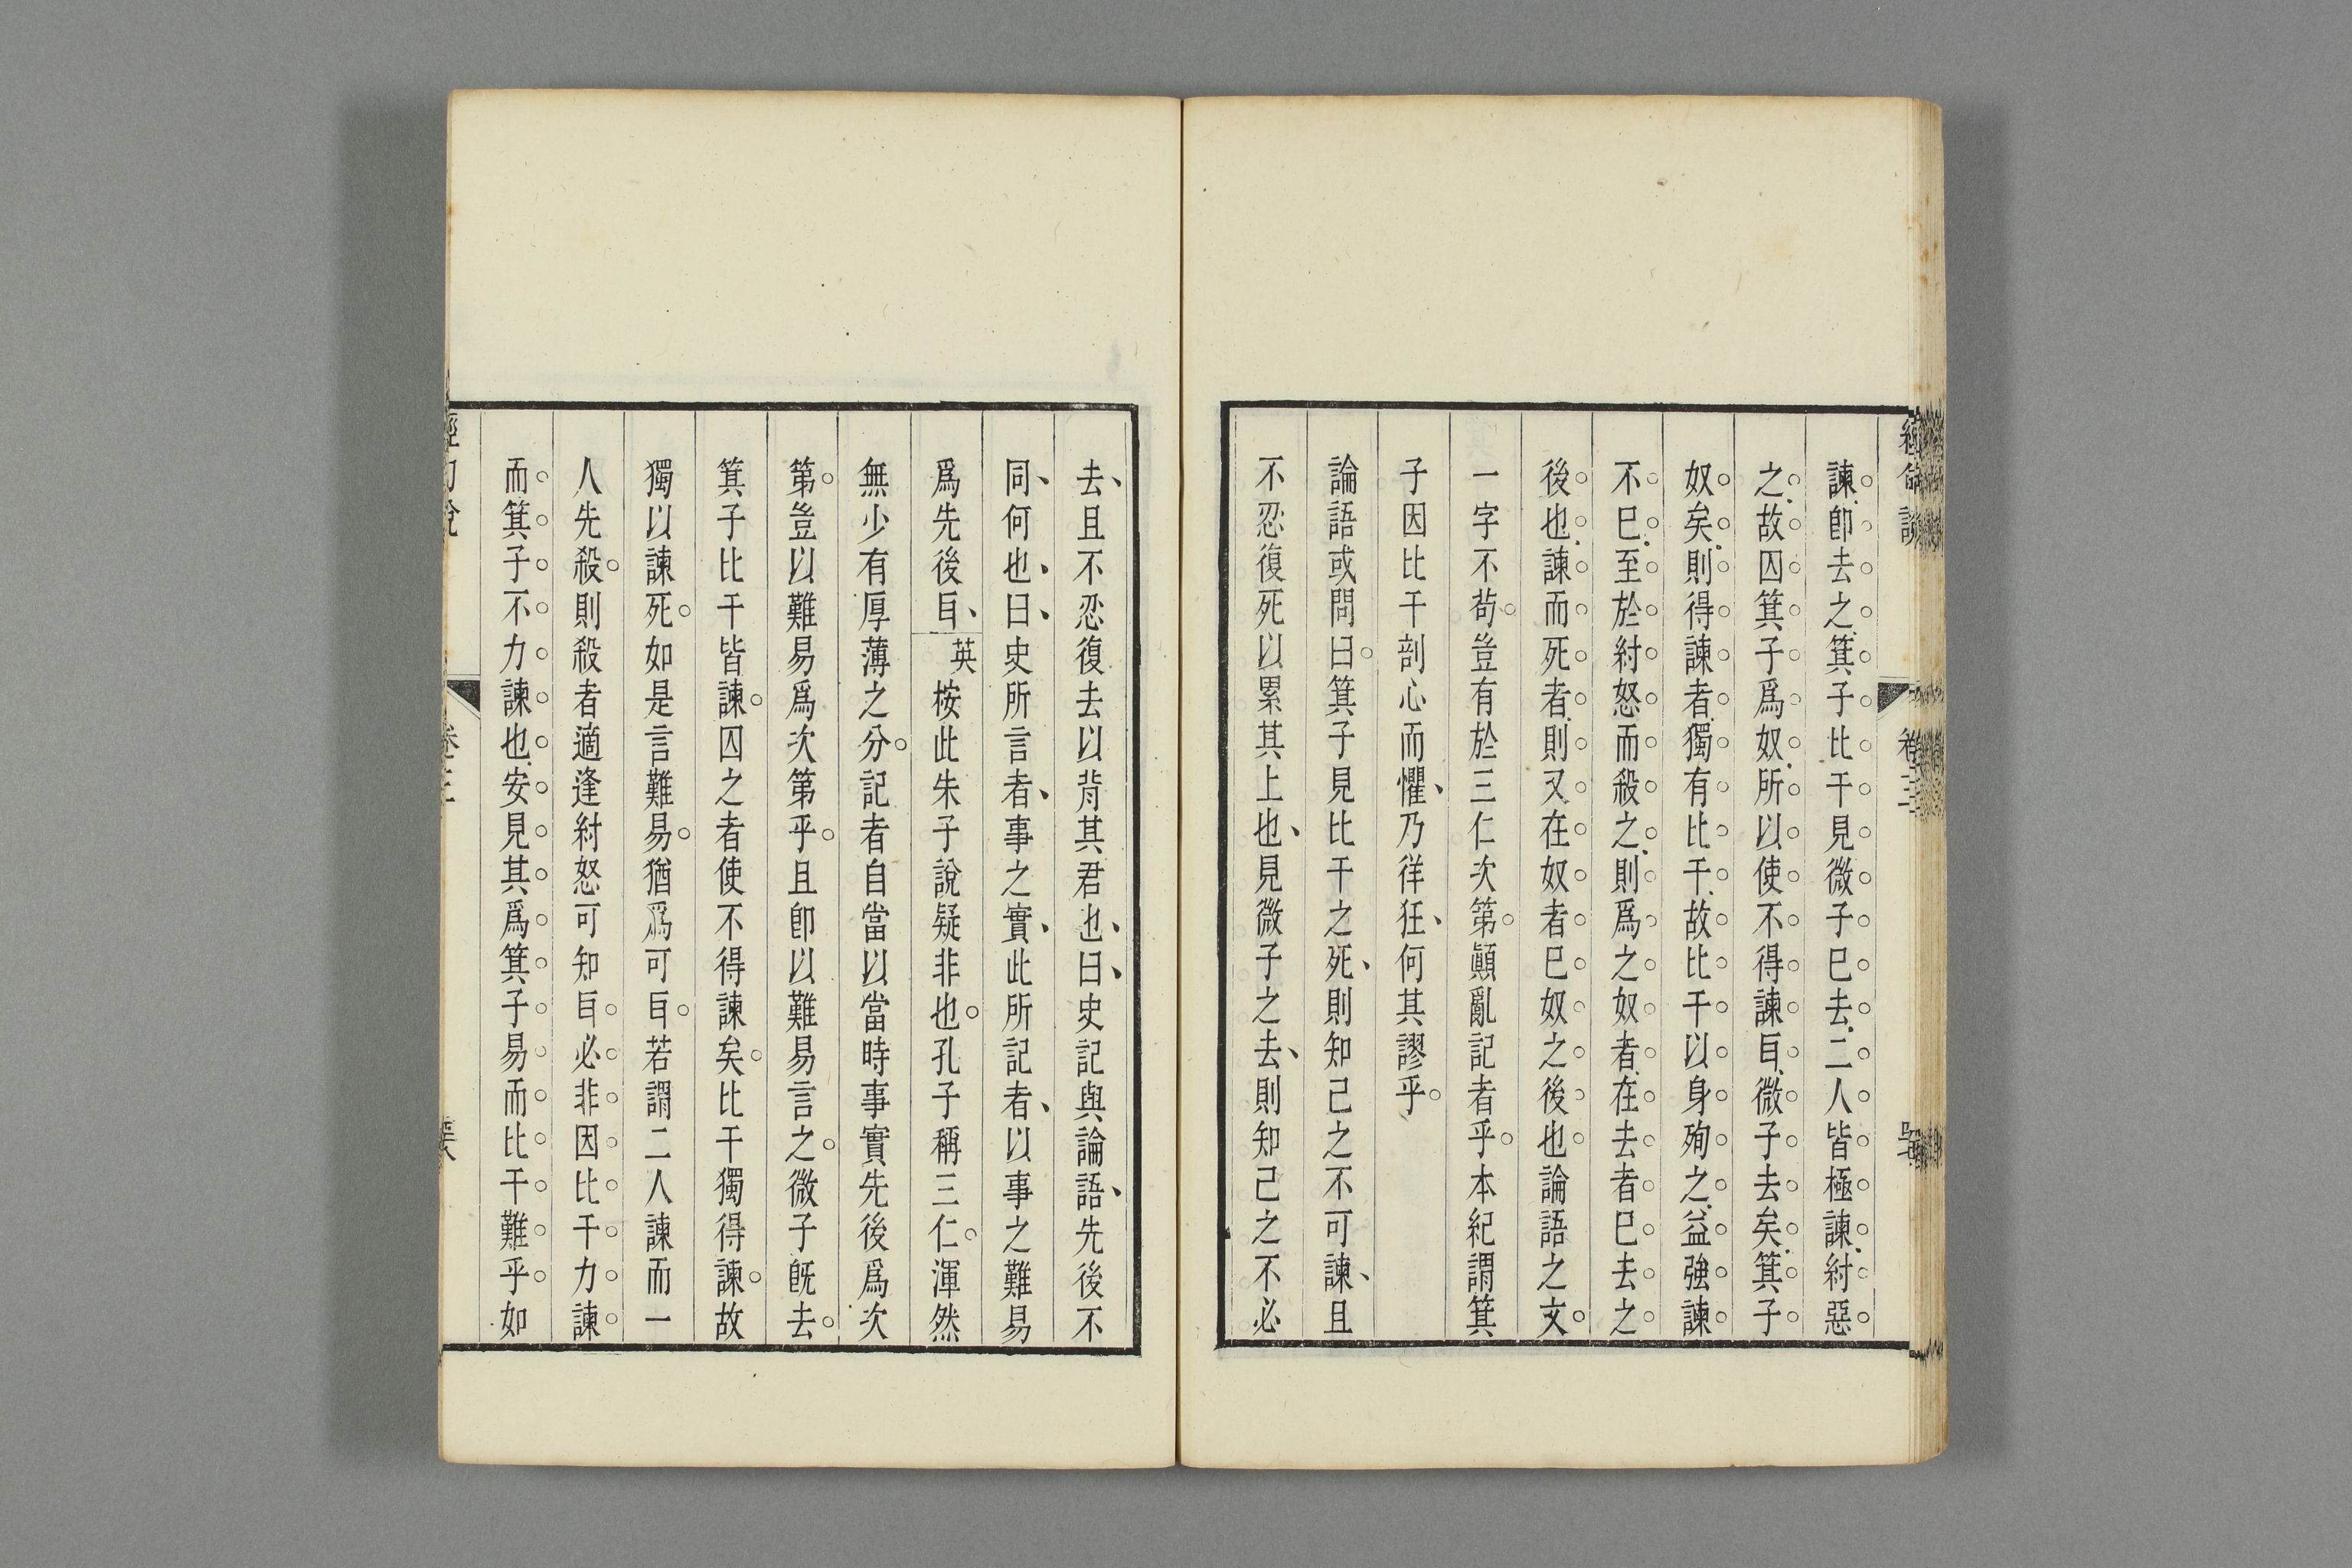 諫卽去之箕子比干見微子巳去二人皆極諫紂惡
之故囚箕子爲奴所以使不得諫耳微子去矣箕子
奴矣則得諫者獨有比干故比干以身殉之益強諫
不巳至於紂怒而殺之則爲之奴者在去者巳去之
後也諫而死者則又在奴者巳奴之後也論語之文
一字不茍豈有於三仁次第顚亂記者乎本紀謂箕
子因比干剖心而懼乃徉狂何其謬乎
論語或問曰箕子見比干之死則知己之不可諫且
不忍復死以累其上也見微子之去則知己之不必
去且不忍復去以背其君也曰史記與論語先後不
同何也曰史所言者事之實此所記者以事之難易
爲先後耳英桉此朱子說疑非也孔子稱三仁渾然
無少有厚薄之分記者自當以當時事實先後爲次
第豈以難易爲次第乎且卽以難易言之微子旣去
箕子比干皆諫囚之者使不得諫矣比干獨得諫故
獨以諫死如是言難易猶爲可耳若謂二人諫而一
人先殺則殺者適逢紂怒可知耳必非因比干力諫
而箕子不力諫也安見其爲箕子易而比干難乎如
卷三